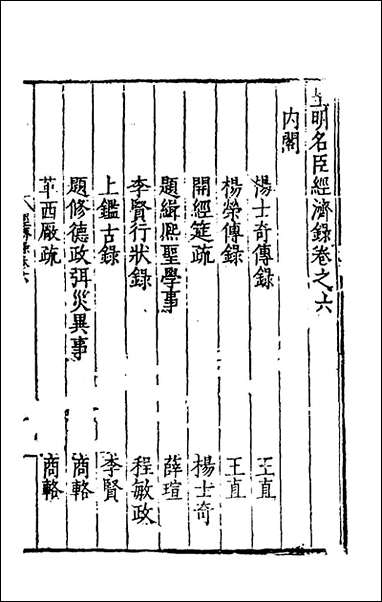 皇明名臣經濟錄卷之六
內閣
楊士奇傳錄 王直
楊榮傳錄 王直
開經筵疏 楊士奇
題緝熙聖學事 薛瑄
李賢行狀錄 程敏政
上鑑古錄 李賢
題修德政弭災異事 商輅
革西廠疏 商輅